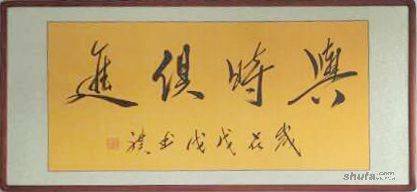 與時俱進
歲在戊戌
shufa.com